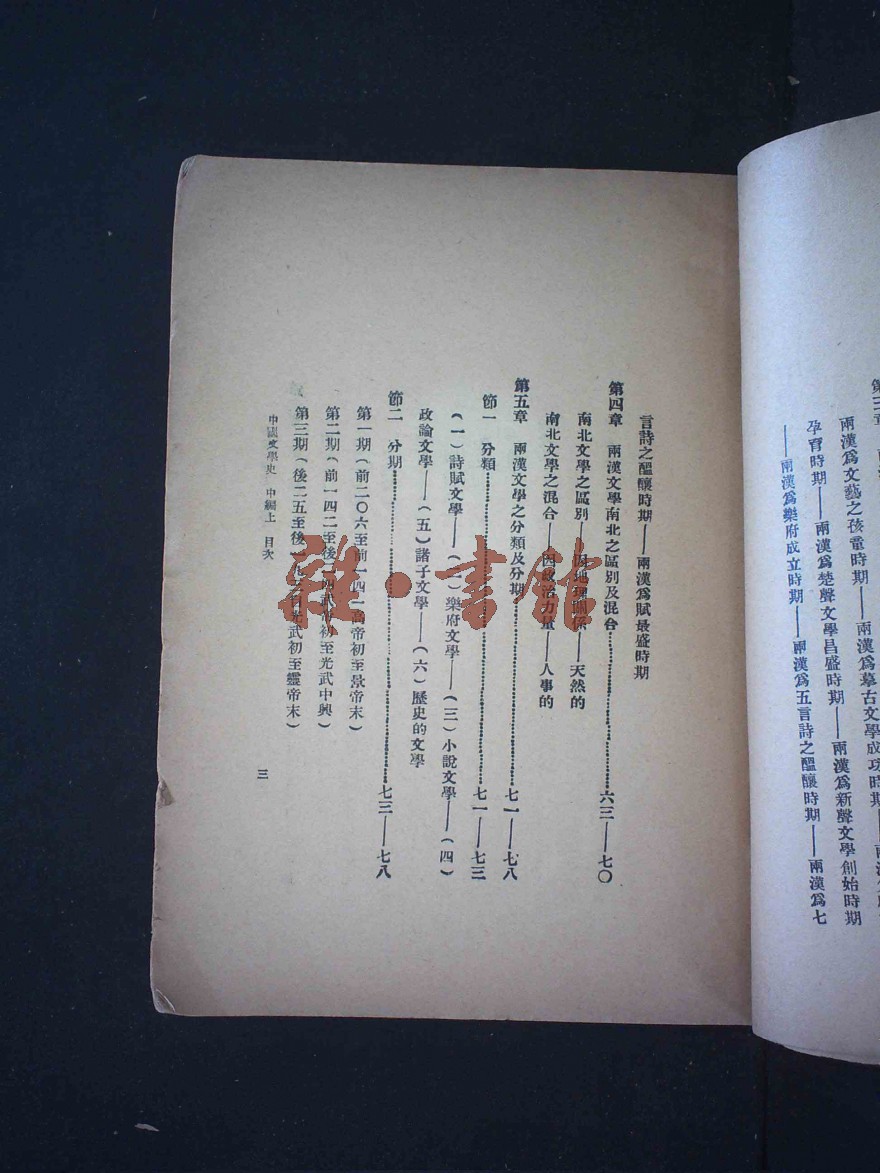 孕育時期——兩漢爲楚聲文學昌盛時期——兩漢爲新聲文學創始時期
——兩漢爲樂府成立時期——兩漢爲五言詩之醞釀時期——兩漢爲七
言詩之醞釀時期——兩漢爲賦最盛時期
第四章 兩漢文學南北之區別及混合……六三——七〇
南北文學之區別——因地理關係——天然的
南北文學之混合——因政治力量——人事的
第五章 兩漢文學之分類及分期……七一——七八
節一 分類……七一——七三
(一)詩賦文學——(二)樂府文學——(三)小說文學——(四)
政論文學——(五)諸子文學——(六)歷史的文學
節二 分期……七三——七八
第一期(前二〇六至前一四二高帝初至景帝末)
第二期(前一四二至後二四武帝初至光武中興)
第三期(後二五至後一九 光武初至靈帝末)
中國文學史 中編上 目次
三
雜·書館